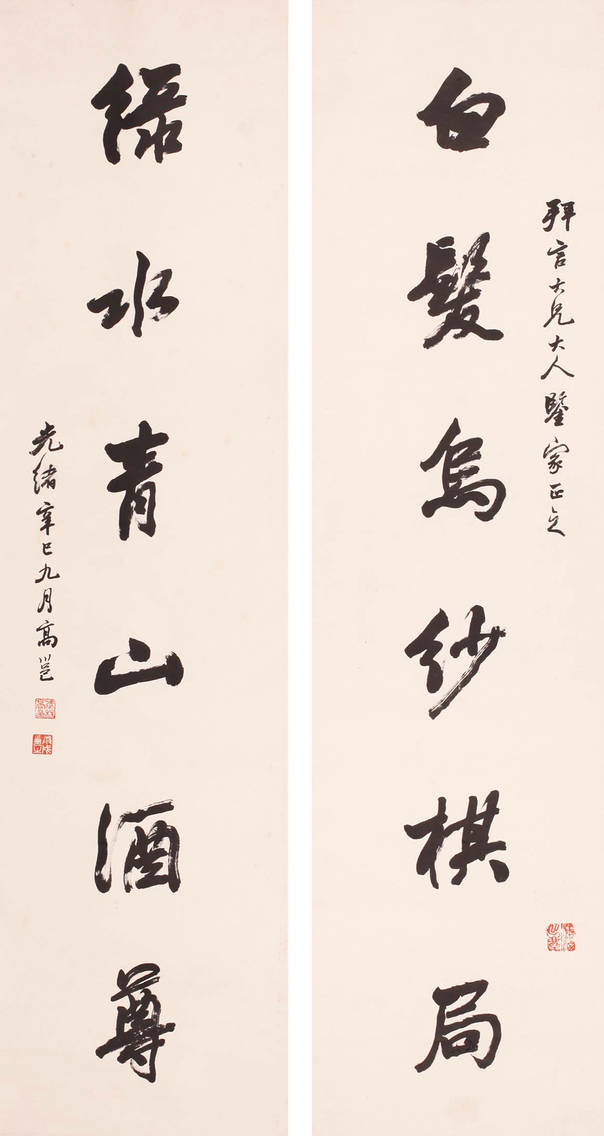 拜言大兄大人鑒家正之
白髮烏紗棋局
綠水青山酒尊
光緒辛巳九月高邕